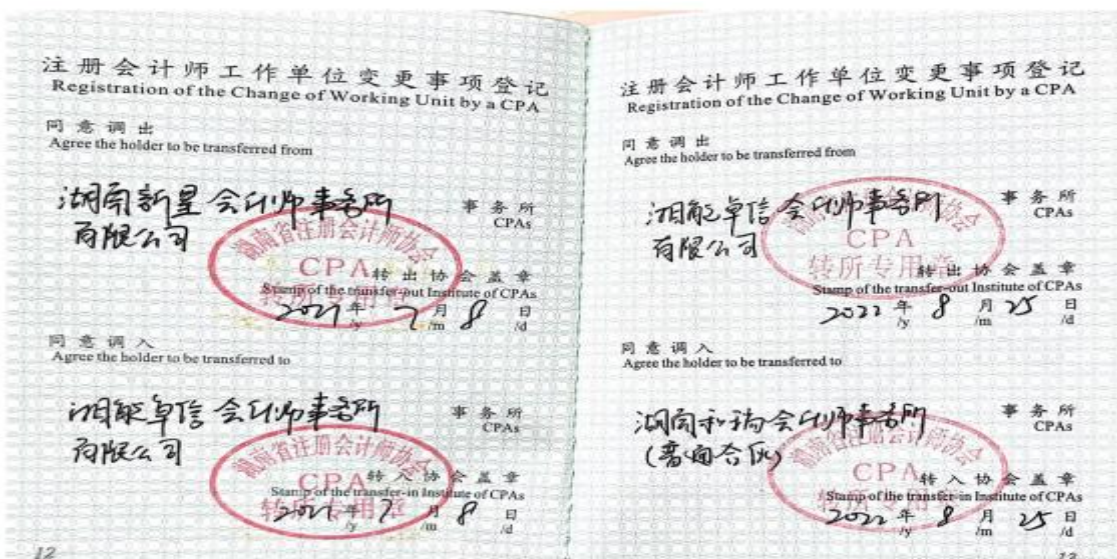 注册会计师工作单位变更事项登记
Registration of the Change of Working Unit by a CPA
同意调出
Agree the holder to be transferred from
湖南新星会计师事务所
有限公司
事务所
CPAs
湖南省注册会计师协会
CPA
转所专用章
转出协会盖章
Stamp of the transfer-out Institute of CPAs
2021年 7月 8日
/y /m /d
同意调入
Agree the holder to be transferred to
湘能卓信会计师事务所
有限公司
事务所
CPAs
湖南省注册会计师协会
CPA
转所专用章
转入协会盖章
Stamp of the transfer-in Institute of CPAs
2021年 7月 8日
/y /m /d
12
注册会计师工作单位变更事项登记
Registration of the Change of Working Unit by a CPA
同意调出
Agree the holder to be transferred from
湘能卓信会计师事务所
有限公司
事务所
CPAs
湖南省注册会计师协会
CPA
转所专用章
转出协会盖章
Stamp of the transfer-out Institute of CPAs
2022年 8月 25日
/y /m /d
同意调入
Agree the holder to be transferred to
湖南和瑞会计师事务所
(普通合伙)
事务所
CPAs
湖南省注册会计师协会
CPA
转所专用章
转入协会盖章
Stamp of the transfer-in Institute of CPAs
2022年 8月 25日
/y /m /d
13